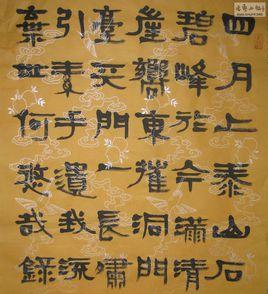 四月上泰山石
碧峰於今满清
崖嚮東摧洞門
臺天門一長嘯
引来手遺我流
棄世何悠哉錄